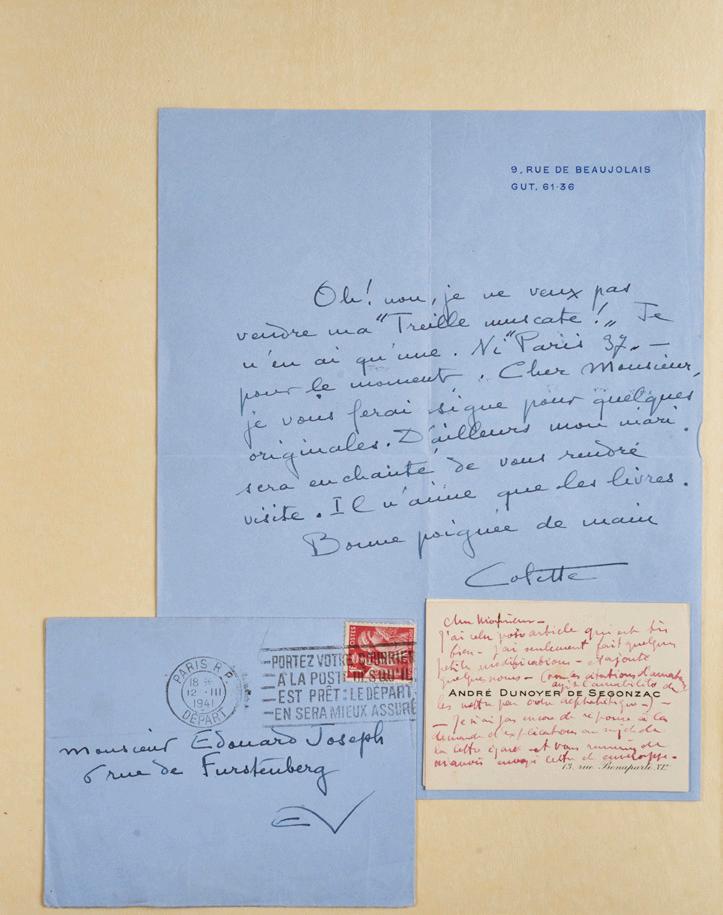 9, RUE DE BEAUJOLAIS
GUT. 61-36
Oh! non, je ne veux pas
vendre ma "Treille muscate!" Je
n'en ai qu'une. Ni "Paris 37." —
pour le moment. Cher Monsieur,
je vous ferai signe pour quelques
originales. D'ailleurs mon mari
sera enchanté de vous rendre
visite. Il n'aime que les livres.
Bonne poignée de main
Colette
PARIS. R.P.
18
12 - III
1941
DÉPART
PORTEZ VOTRE COURRIER
A LA POSTE DÈS QU'IL
EST PRÊT: LE DÉPART
EN SERA MIEUX ASSURÉ
Monsieur Edouard Joseph
6 rue de Furstenberg
EV
Cher Monsieur —
J'ai relu votre article qui est très
bien - j'ai seulement fait quelques
petites modifications - et ajouté
quelques noms -
ANDRÉ DUNOYER DE SEGONZAC
les mettre par ordre alphabétique -) -
- Je n'ai pas encore de réponse à la
demande d'explication au sujet de
la lettre égarée - et vous remercie de
m'avoir envoyé cette enveloppe -
13, rue Bonaparte VIe